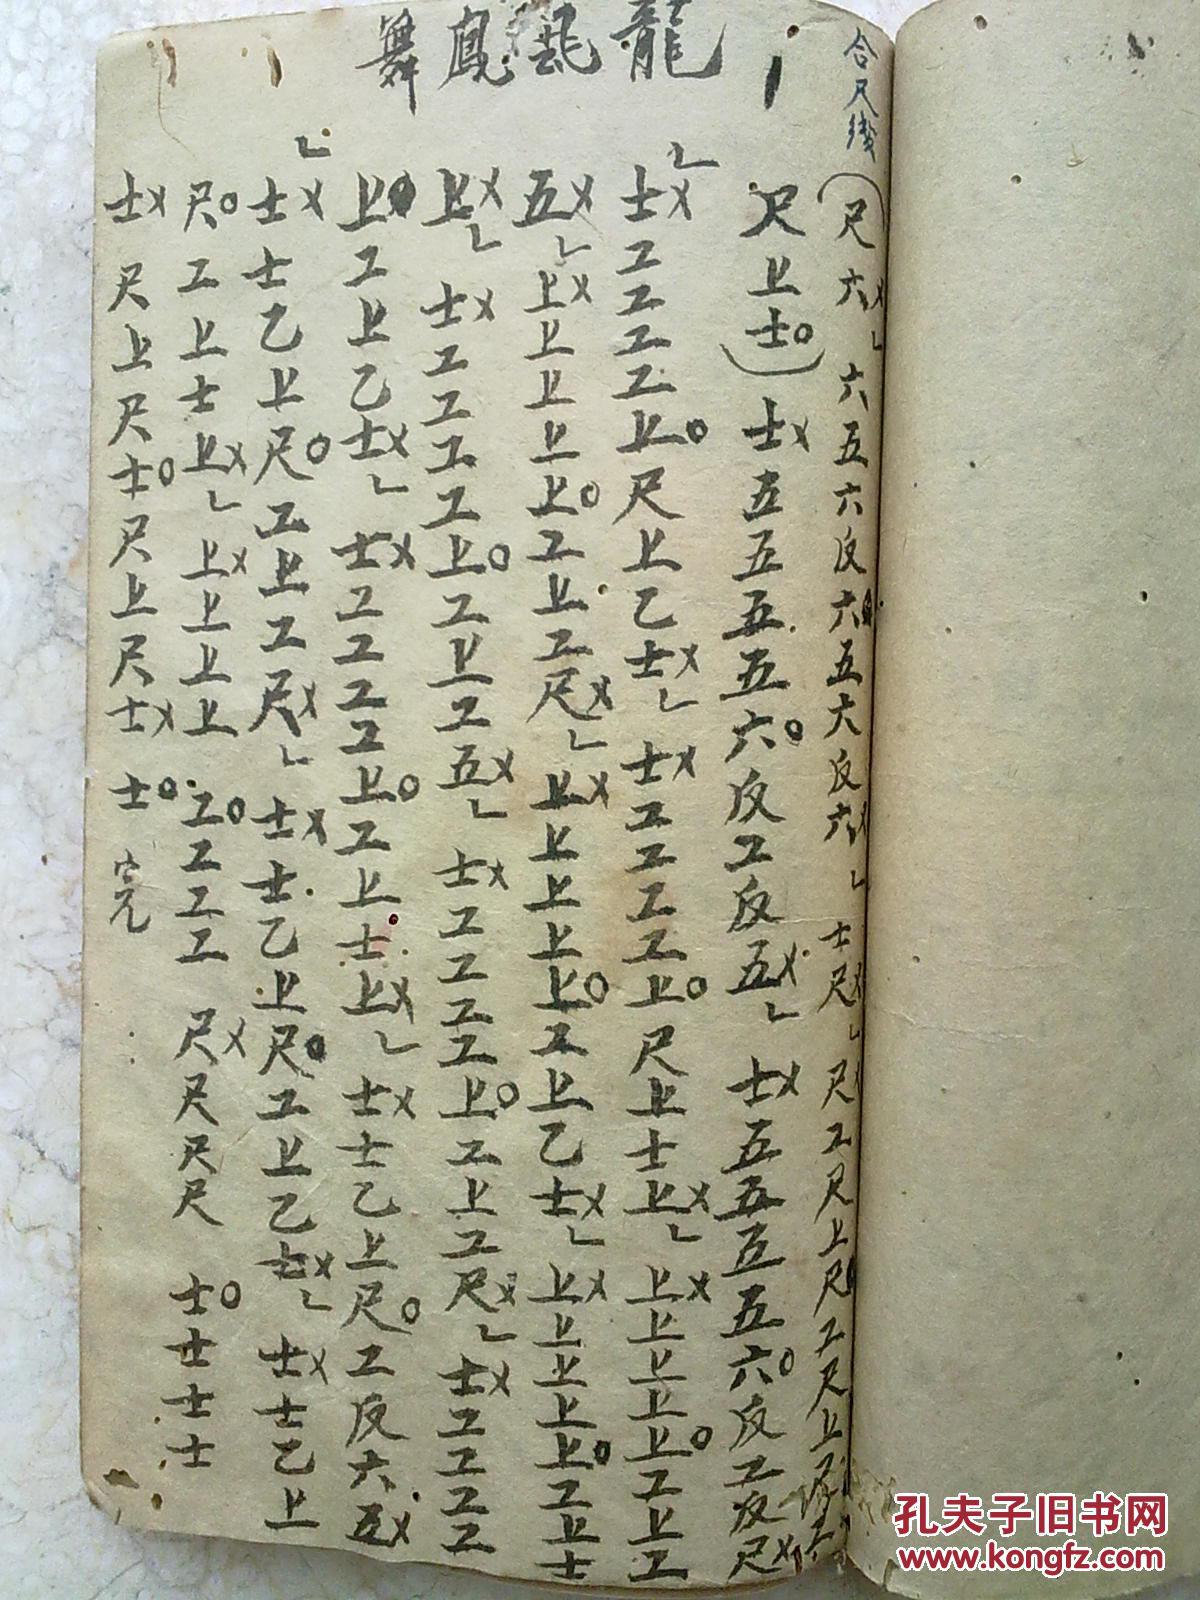 龍飛鳳舞
合尺线
(尺六六五六反六五六反六士尺尺工尺上尺工尺上
尺上士)士五五五五六反工反五士五五五五六反工反尺
士工工工工上尺上乙士士工工工工上尺上士上上上上上上工上工
五上上上上上工上工尺上上上上上工上乙士上上上上上工上士
上士工工工工上工上工五士工工工工上工上工尺士工工工工
上工上乙士士工工工工上工上士上士士乙上尺工反六五
士士乙上尺工上工尺士士乙上尺工上乙士士士乙上
尺工上士上上上上上工工工工尺尺尺尺士士士士
士尺上尺士尺上尺士士完
孔夫子旧书网
www.kongfz.com